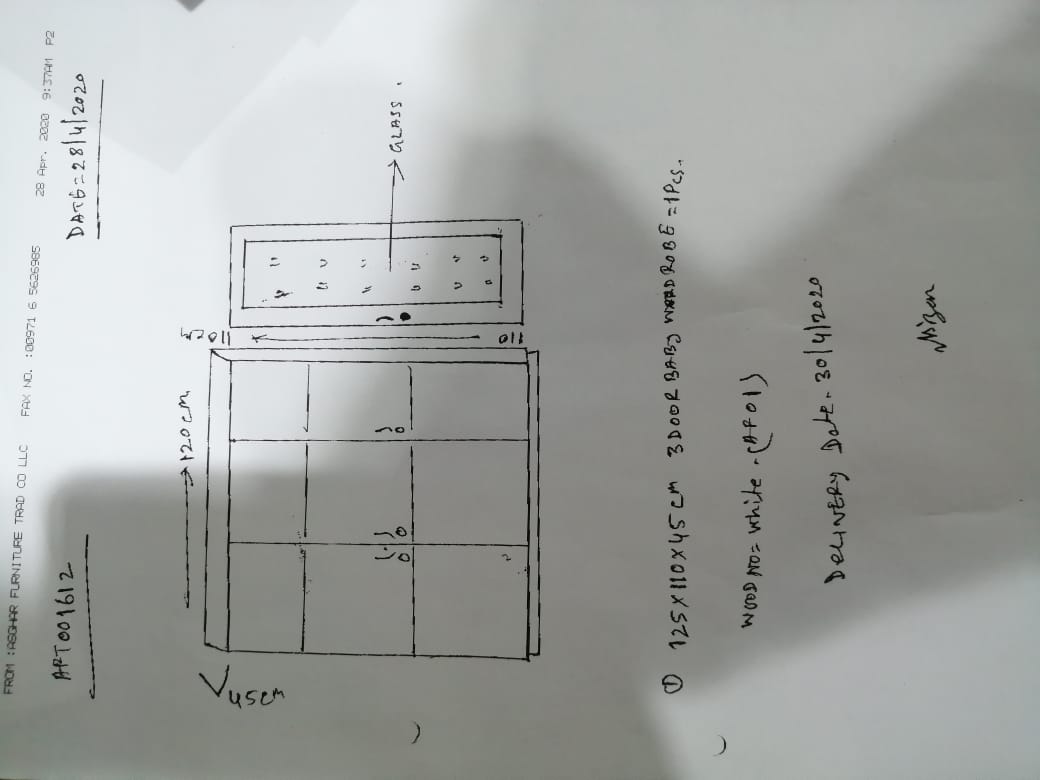 FROM :ASGHAR FURNITURE TRAD CO LLC FAX NO. :00971 6 5626985 28 Apr. 2020 9:37AM P2
ART001612
DATE=28/4/2020
120cm
45cm
GLASS.
① 125X110X45cm 3DOOR BABY WARDROBE=1Pcs.
WOOD NO= white -(AF01)
DELIVERY Date- 30/4/2020
Nizam